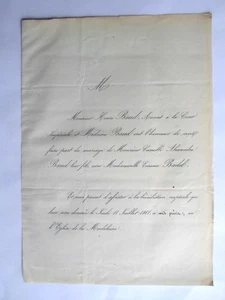 M
Monsieur Henri Bonnel Avocat à la Cour
Impériale et Madame Bonnel ont l'honneur de vous
faire part du mariage de Monsieur Camille Alexandre
leur fils, avec Mademoiselle
Et vous prient d'assister à la bénédiction nuptiale qui
leur sera donnée le Jeudi 11 Juillet à midi précis, en
l'Eglise de la Madeleine.